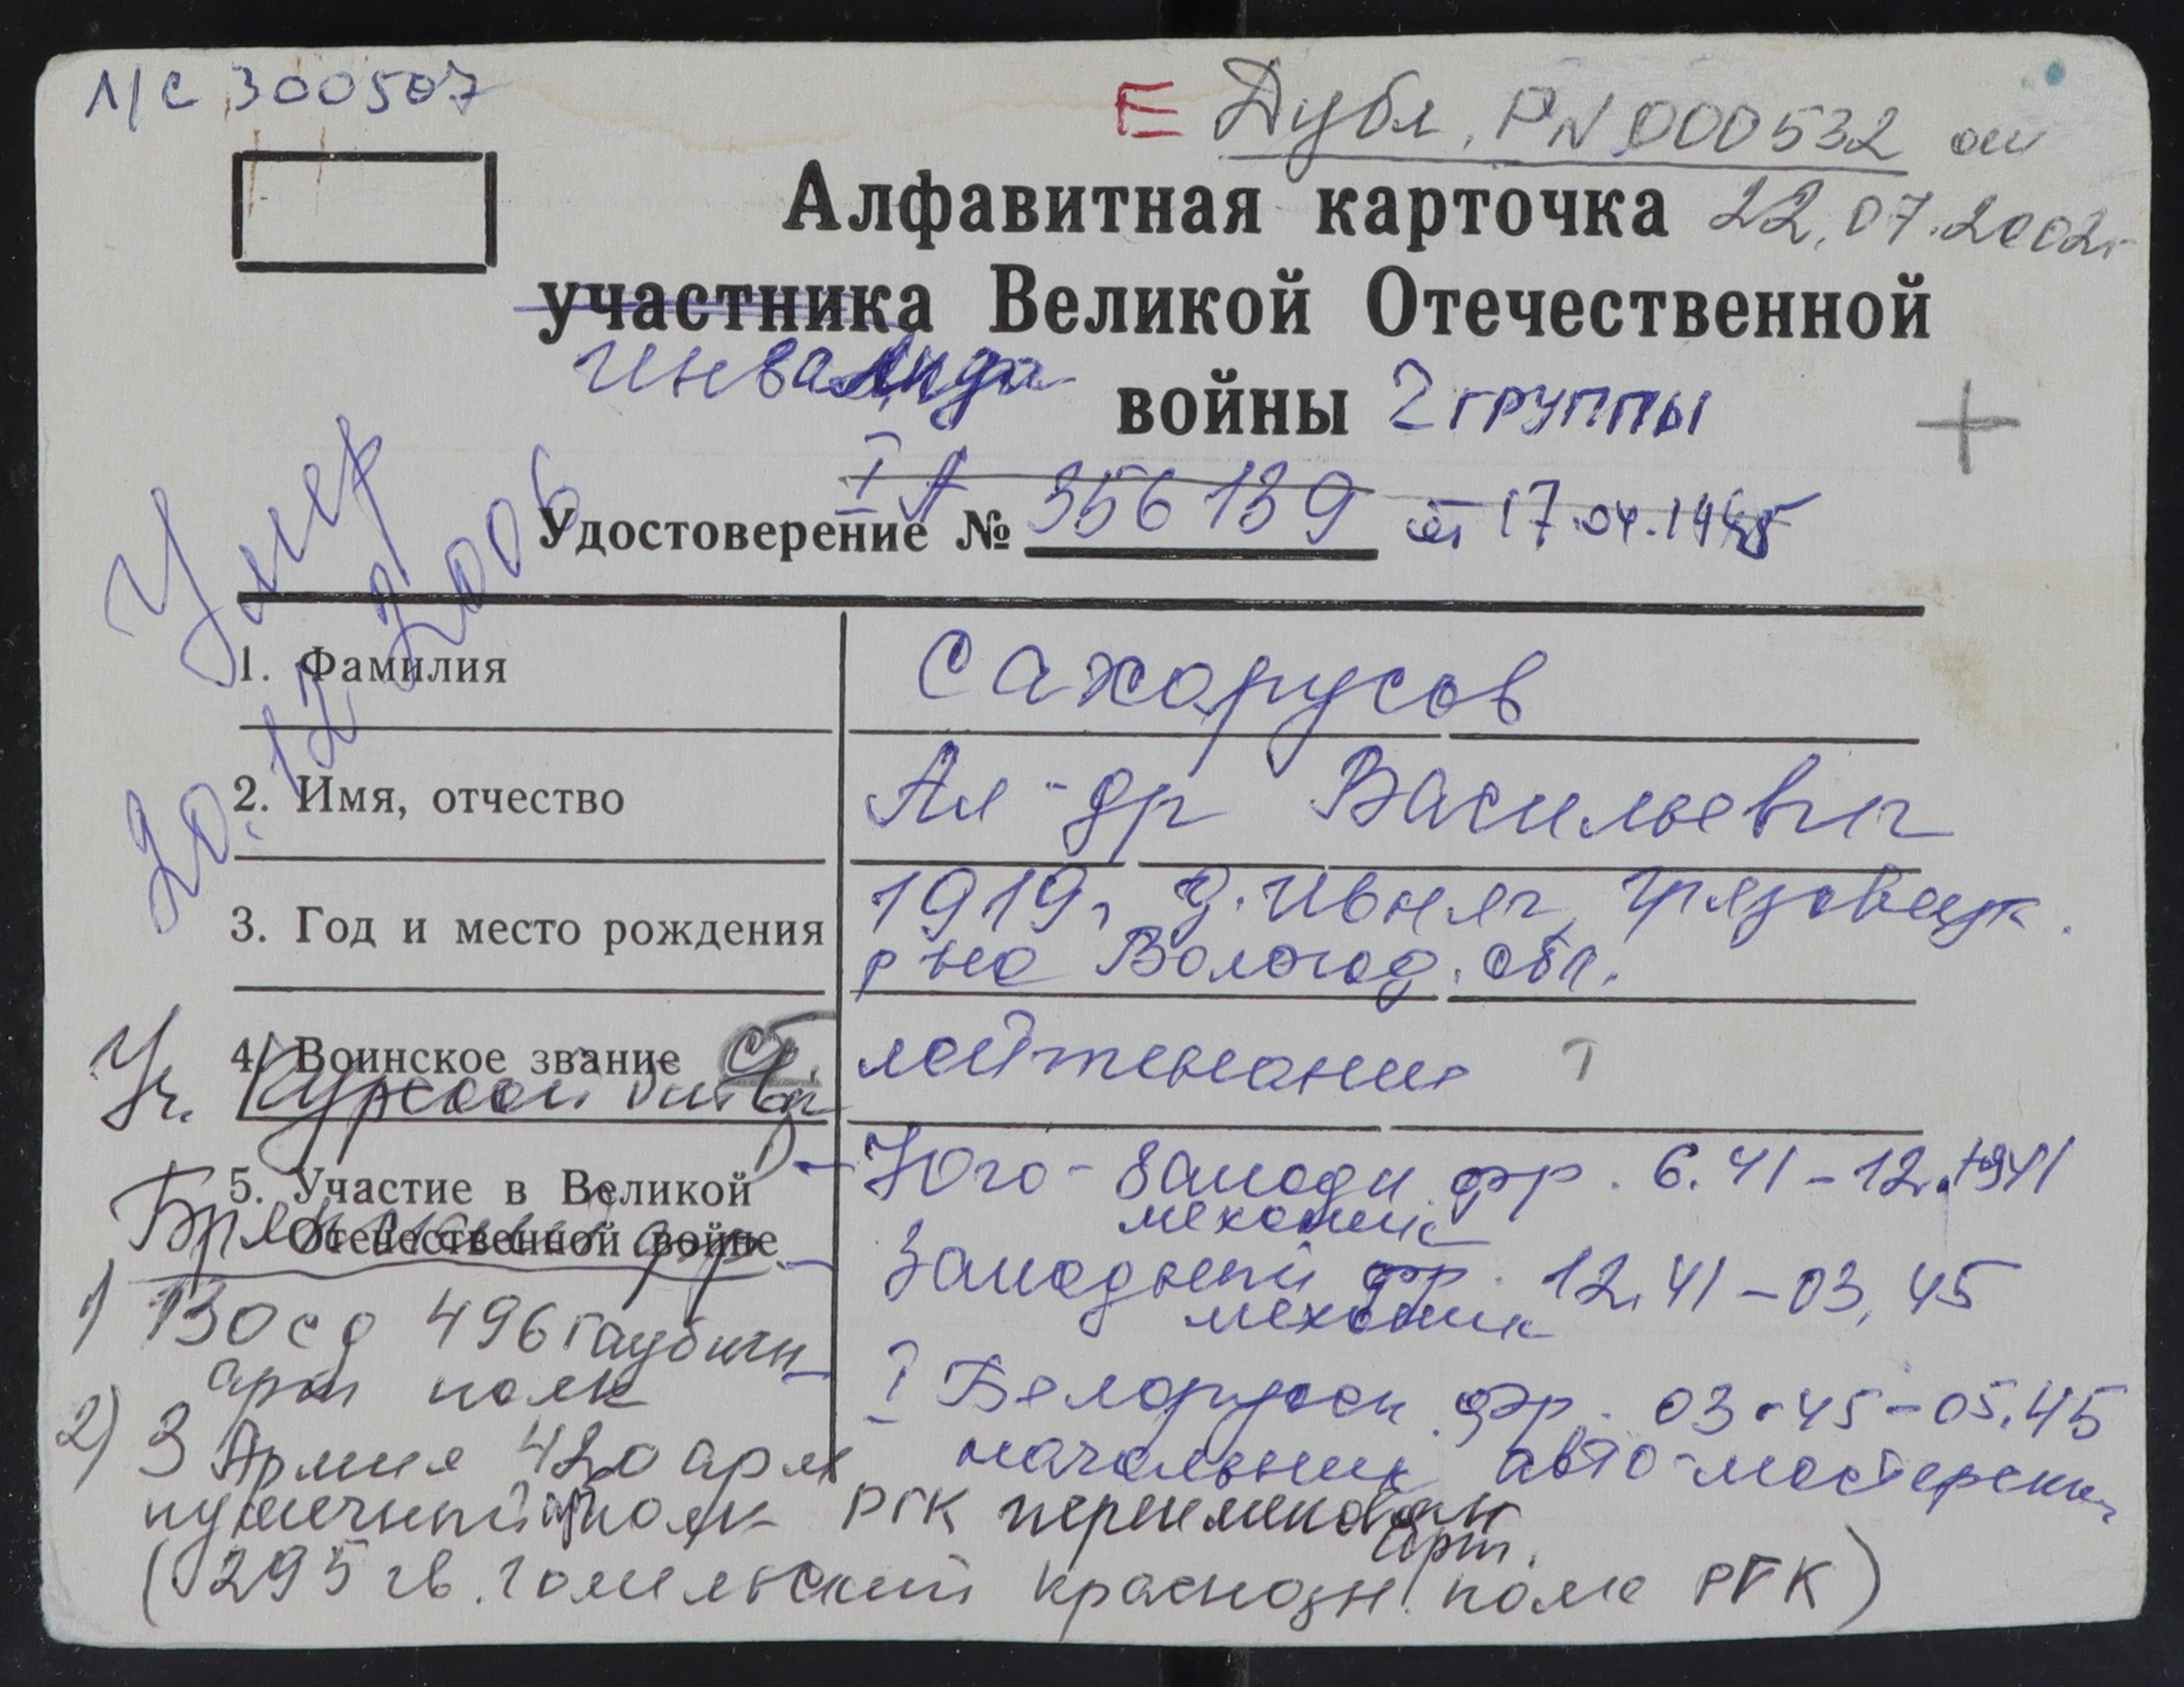 Л/С 300507
Е Дубл. РN 000532
Алфавитная карточка 22.07.2002г
участника Великой Отечественной
инвалида
войны 2 группы
+
I А
Удостоверение № 356139 от 17.04.1995
Умер
20.12.2006
1. Фамилия Сахорусов
2. Имя, отчество Ал-др Васильевич
3. Год и место рождения 1919г д. Ивняг, Грязовецк.
р-на Вологод. обл.
4. Воинское звание ст. лейтенант
Уч. Курской битвы
5. Участие в Великой
Отечественной войне
Брянский фр.
- Юго-Западн. фр. 6.41-12.1941
механик
- Западный фр. 12.41-03.45
механик
- I Белорусск. фр. 03.45-05.45
начальник авто-мастерских
1) 130 сд 496 гаубичн
арт полк
2) 3 Армия 420 арм
пушечный полк РГК переименован
арт.
(295 гв. Гомельский краснозн. полк РГК)